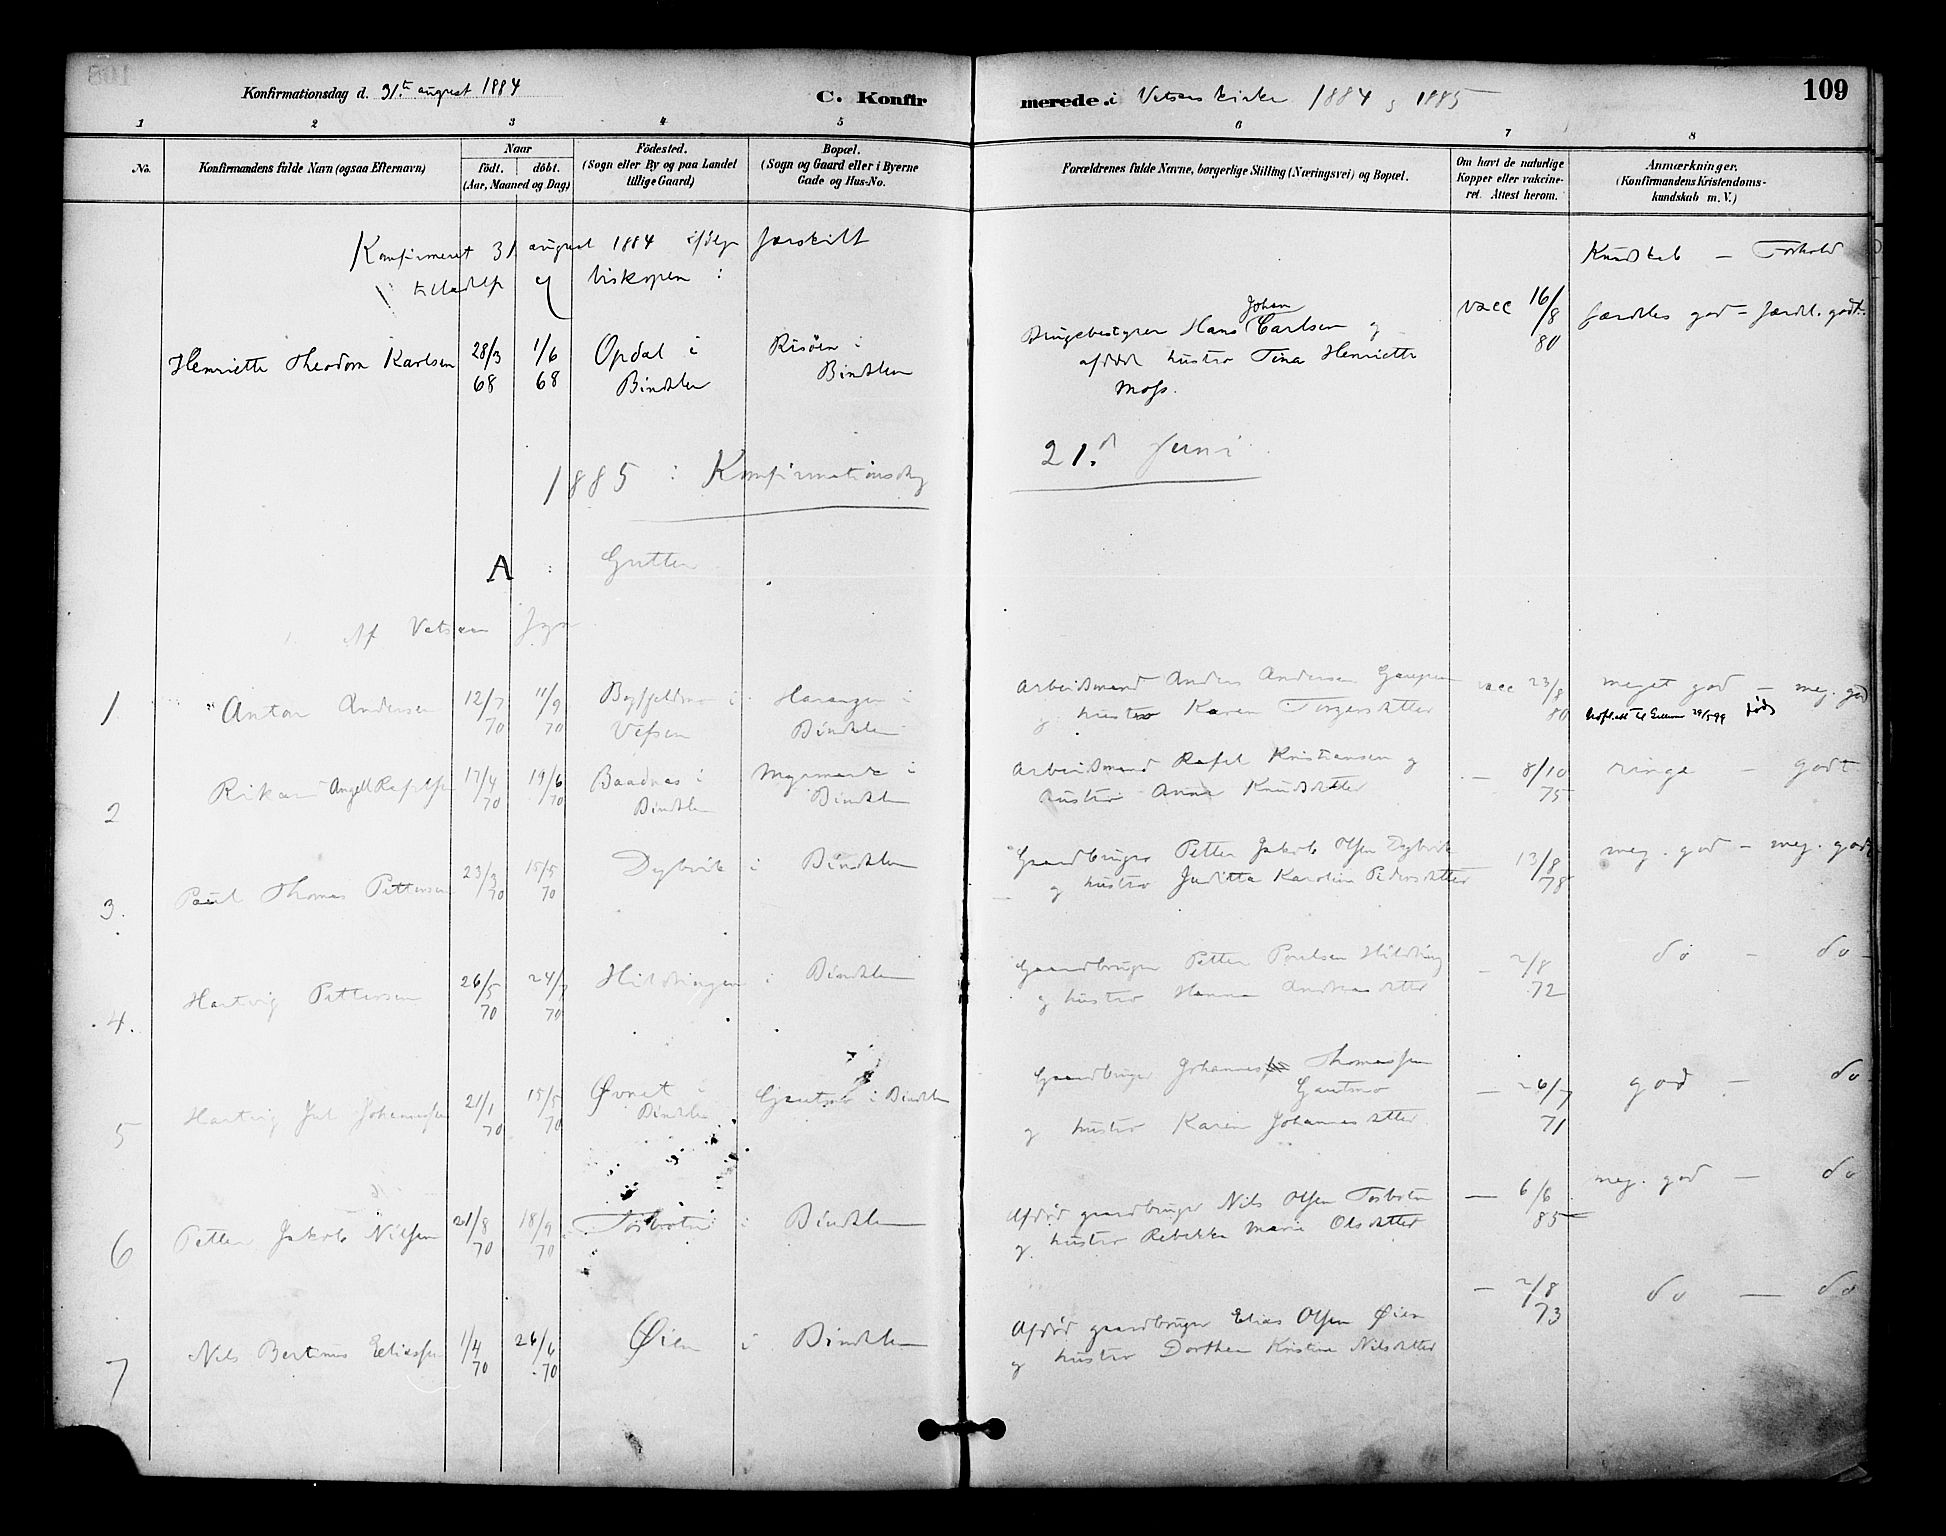 Konfirmationsdag d. 31.te august 1884
C. Konfirmerede i Vatsaas kirke 1884 1885
109
1 2 3 4 5 6 7 8
No.
Konfirmandens fulde Navn (ogsaa Efternavn)
Naar
födt. döbt.
(Aar, Maaned og Dag)
Födested.
(Sogn eller By og paa Landet
tillige Gaard)
Bopæl.
(Sogn og Gaard eller i Byerne
Gade og Hus-No.
Forældrenes fulde Navne, borgerlige Stilling (Næringsvei) og Bopæl.
Om havt de naturlige
Kopper eller vakcine-
ret. Attest herom.
Anmærkninger.
(Konfirmandens Kristendoms-
kundskab m. V.)
Konfirmeret 31 august 1884 ifølge særskilt
tilladelse af biskopen :
Kundskab — Forhold
Henriette Theodora Karlsen
28/3 68
1/6 68
Opdal i
Bindalen
Risøen i
Bindalen
Brugsbestyrer Hans Johan Carlsen og
afdød hustro Tina Henriette
Moss.
vacc 16/8 80
særdeles god — særdl. godt.
1885 : Konfirmationsdag 21.d Juni
A : Gutter
Af Vatsaas sogn
1
Anton Andersen
12/7 70
11/9 70
Bogfjeldmo i
Vefsen
Harangen i
Bindalen
Arbeidsmand Anders Andersen
og hustro Karen Torgersdatter
vacc 23/8 80
meget god — meg. god
29/5 99
2
Rikard Angell Rafelsen
17/4 70
19/6 70
Baadnes i
Bindalen
Myrmark i
Bindalen
Arbeidsmand Rafel Kristiansen og
hustro Anna Knudsdatter
— 8/10 75
ringe — godt
3.
Paul Thomas Pettersen
23/3 70
15/5 70
Dybvik i Bindalen
Gaardbruger Petter Jakob Olsen Dybvik
og hustro Juditta Karolina Pedersdatter
— 13/8 78
meg. god — meg. godt
4.
Hartvig Pettersen
26/5 70
24/7 70
Hildringen i Bindalen
Gaardbruger Petter Poulsen Hildring
og hustro Hanna Andreasdatter
— 2/8 72
do — do
5
Hartvig Jul Johannessen
21/1 70
15/5 70
Øvnet i
Bindalen
Gautsmo i Bindalen
Gaardbruger Johannes Thomassen
Gautsmo
og hustro Karen Johannesdatter
— 26/7 71
god — do
6
Petter Jakob Nilssen
21/8 70
18/9 70
Tosbotn i Bindalen
Afdød gaardbruger Nils Olsen Tosbotn
og hustro Rebekka Marie Olsdatter
— 6/6 85
meg. god — do
7
Nils Bertinus Eliassen
1/4 70
26/6 70
Øien i Bindalen
Afdød gaardbruger Elias Olsen Øien
og hustro Dorthea Kristine Nilsdatter
— 2/8 73
do — do